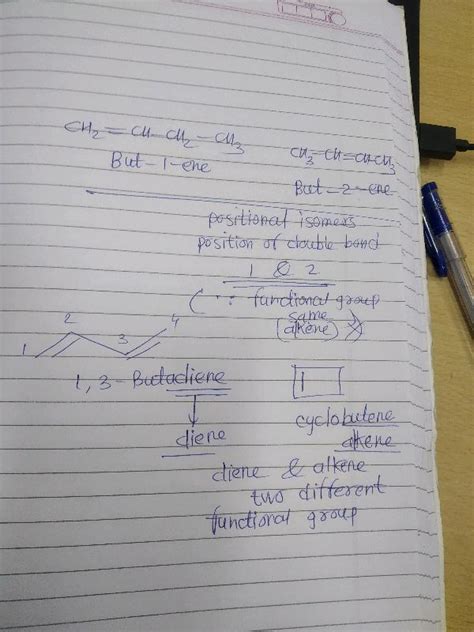 CH2=CH-CH2-CH3
But-1-ene
CH3-CH=CH-CH3
But-2-ene
positional isomers
position of double bond
1 & 2
(∵ functional group
same
(alkene)
1 2 3 4
1,3-Butadiene
↓
diene
cyclobutene
alkene
diene & alkene
two different
functional group